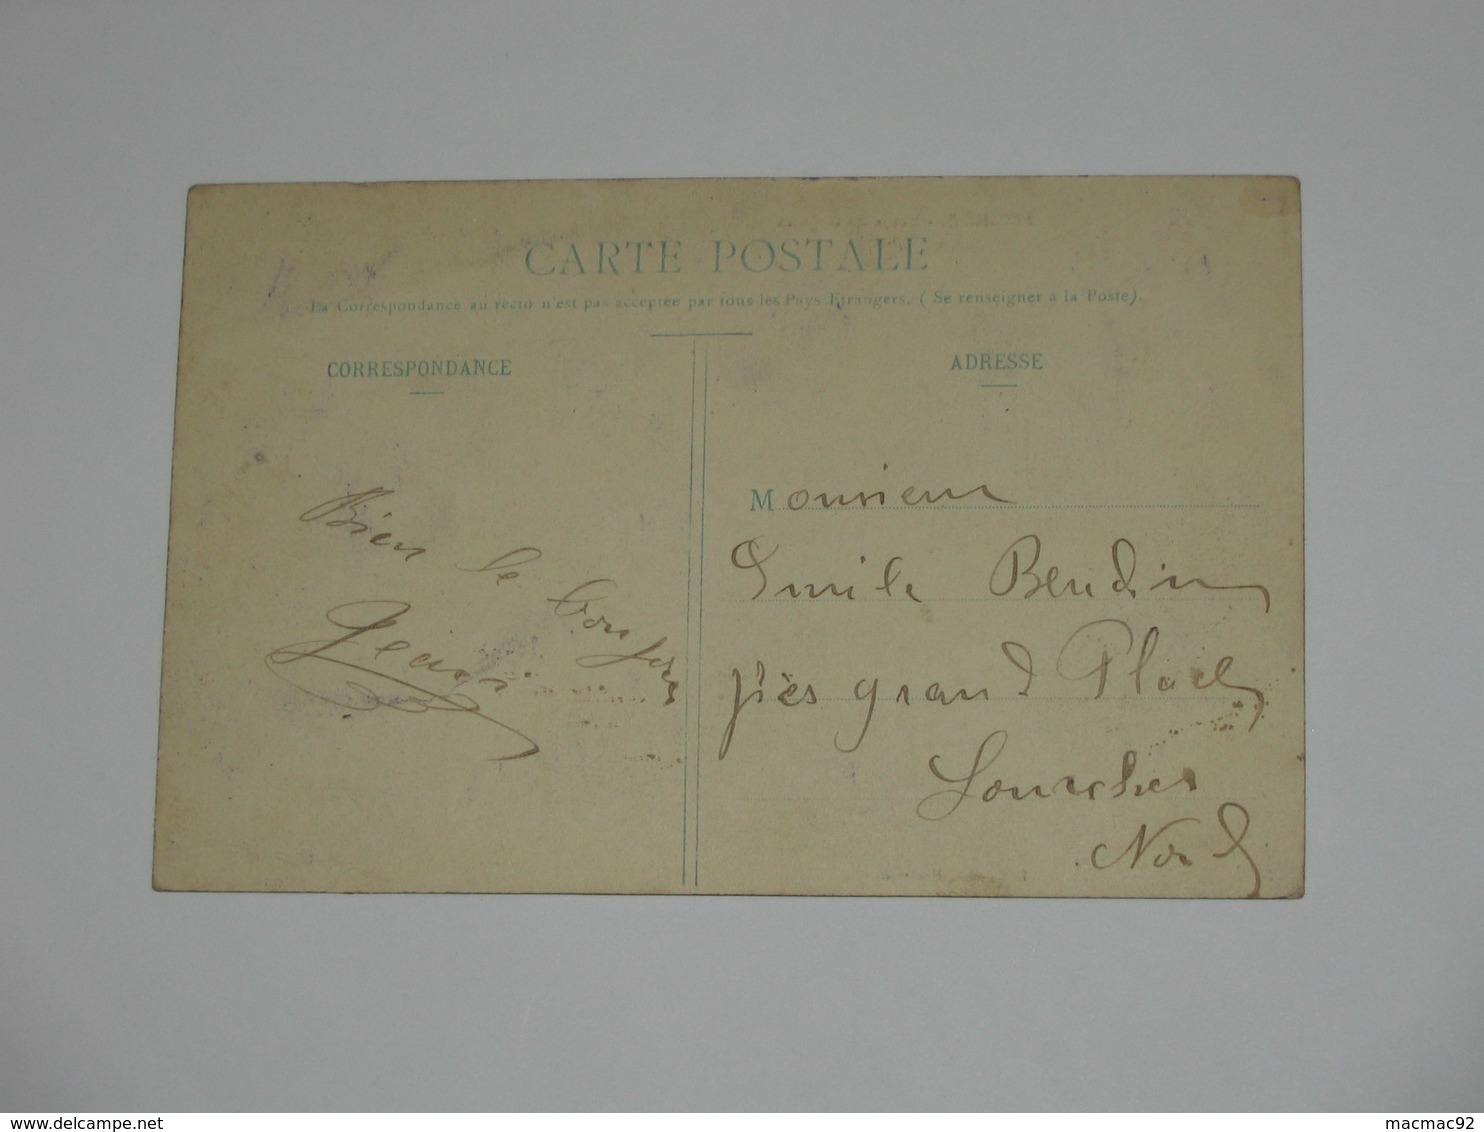 CARTE POSTALE
La Correspondance au recto n'est pas acceptée par tous les Pays Etrangers. ( Se renseigner à la Poste).
CORRESPONDANCE
Bien le bonjour
ADRESSE
Monsieur
Emile
près grand Place
Lourches
Nord
delcampe.net
macmac92